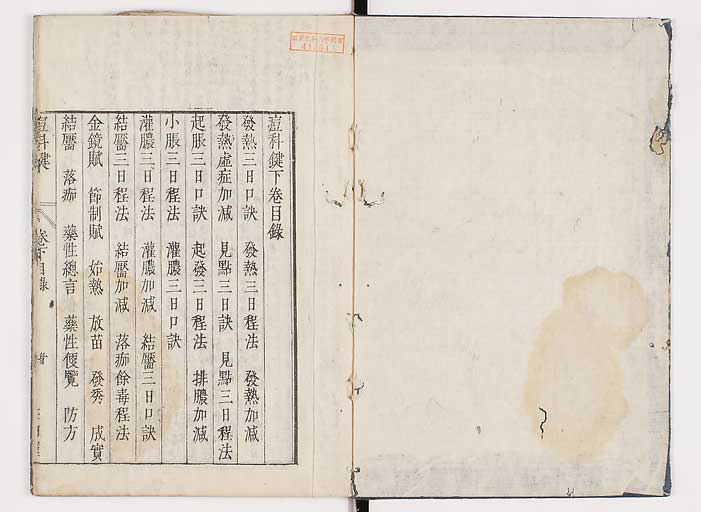 痘科鍵下卷目錄
發熱三日口訣　發熱三日程法　發熱加減
發熱虛症加減　見點三日訣　見點三日程法
起脹三日口訣　起發三日程法　排膿加減
小脹三日程法　灌膿三日口訣
灌膿三日程法　灌膿加減　結靨三日口訣
結靨三日程法　結靨加減　落痂餘毒程法
金鏡賦　節制賦　始熱　放苗　發秀　成實
結靨　落痂　藥性總言　藥性便覽　防方
痘科鍵　卷下目錄